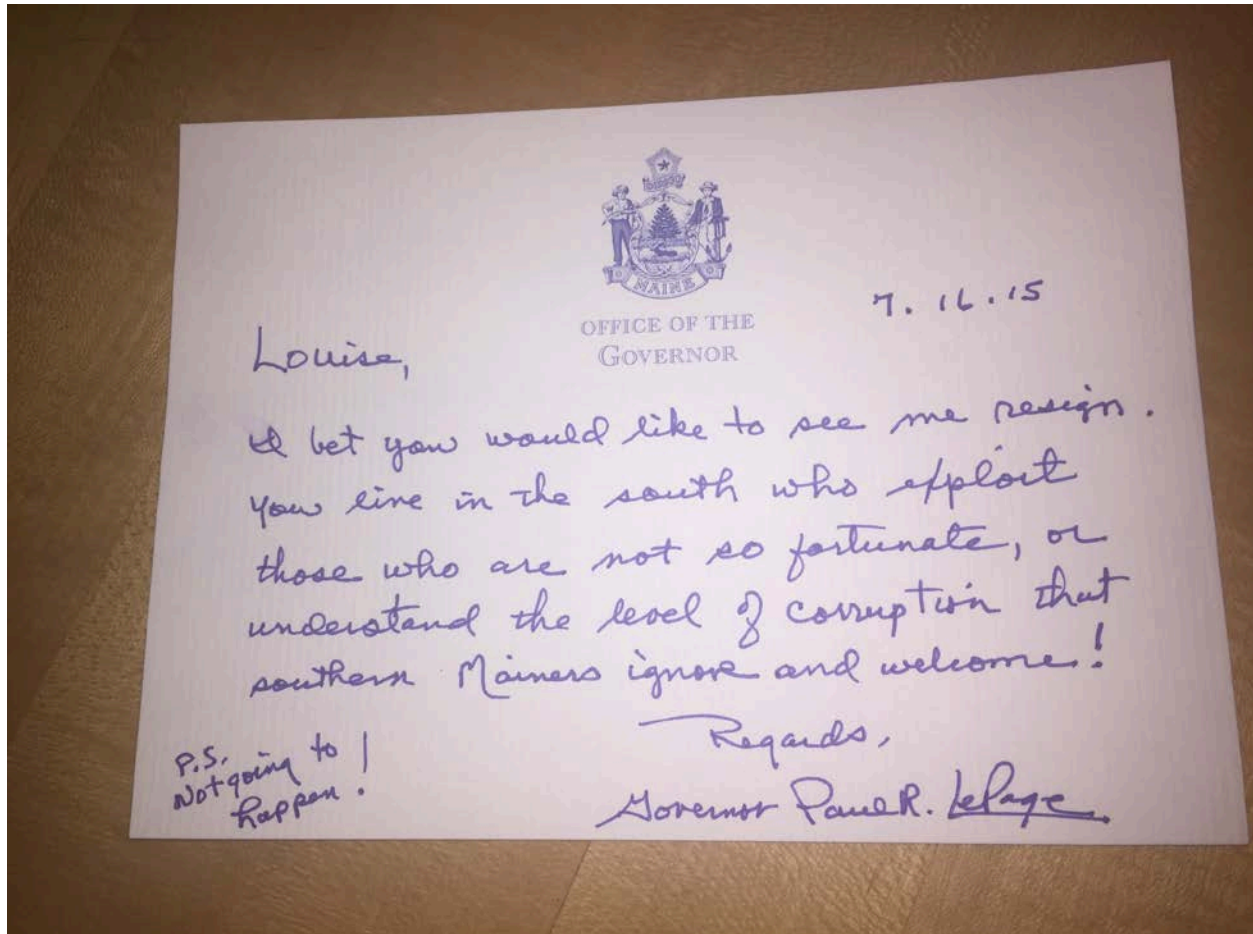 MAINE
OFFICE OF THE
GOVERNOR
7.16.15
Louise,
I bet you would like to see me resign.
You live in the south who exploit
those who are not so fortunate, or
understand the level of corruption that
southern Mainers ignore and welcome!
Regards,
Governor Paul R. LePage
P.S.
Not going to
happen!